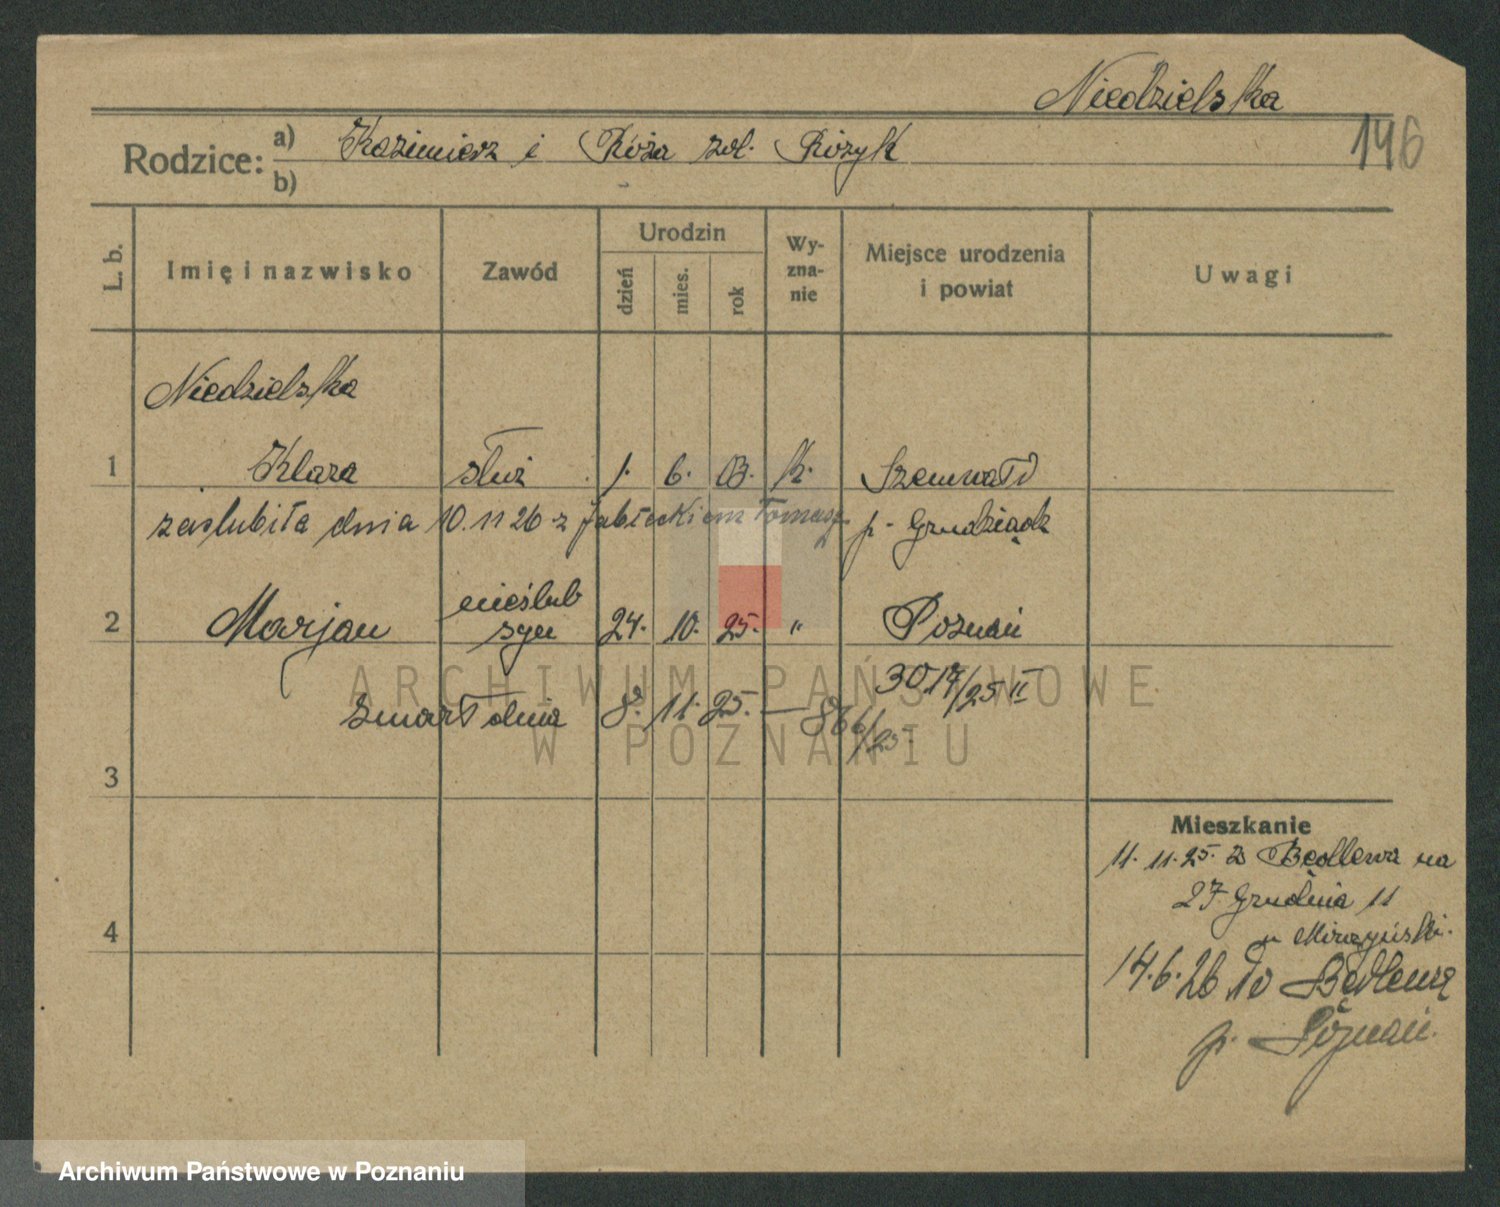 Niedzielska
146
Rodzice: a) Kazimierz i Róża zol. Różyk
b)
L. b.
Imię i nazwisko
Zawód
Urodzin
dzień
mies.
rok
Wy-
zna-
nie
Miejsce urodzenia
i powiat
Uwagi
Niedzielska
1 Klara służ 1. 6. 03. k. Szemwałd
zaślubiła dnia 10.11 26 z Jabłeckiem Tomasz p. Grudziądz
2 Marjan nieślub
syn 24. 10. 25. " Poznań
3017/25 II
zmarł dnia 8. 11. 25. — 866/25
3
4
Mieszkanie
11. 11. 25. z Będlewa na
27 Grudnia 11
u Mirzyński.
14. 6. 26 do Będlewa
p. Poznań.
ARCHIWUM PAŃSTWOWE
W POZNANIU
Archiwum Państwowe w Poznaniu